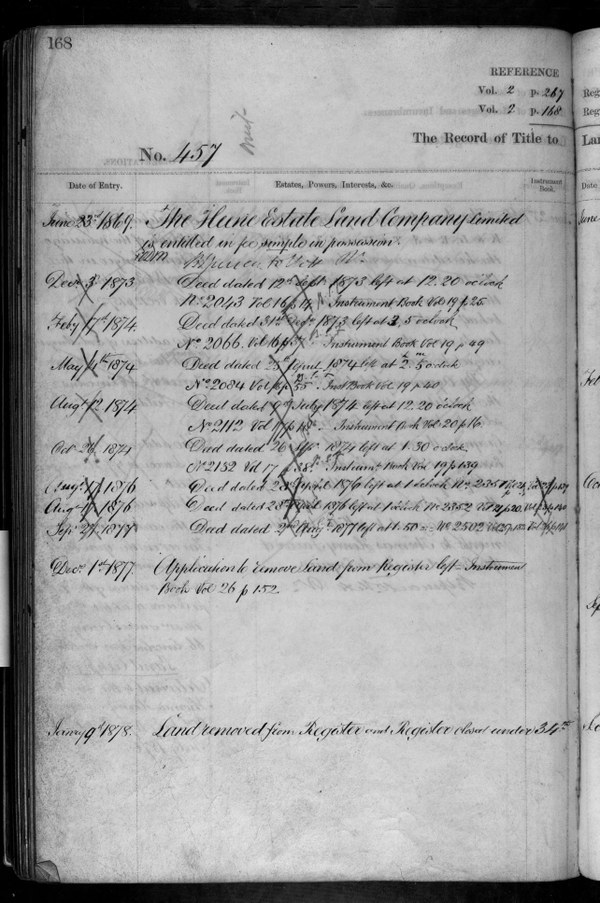 168
REFERENCE
Vol. 2 p. 267
Vol. 2 p. 168
The Record of Title to
No. 457
Date of Entry. Estates, Powers, Interests, &c. Instrument Book.
June 23rd 1869. The Hune Estate Land Company Limited
is entitled in fee simple in possession.
Decr 3 1873 Deed dated 12th Septr 1873 left at 12.20 oclock
No 2043 Vol 16 p 14 Instrument Book Vol 19 p 25
Feby 17th 1874 Deed dated 31st Decr 1873 left at 3.5 oclock
No 2066 Vol 16 p Instrument Book Vol 19 p 49
May 4th 1874 Deed dated 25 April 1874 left at 2.5 oclock
No 2084 Vol 16 p 55. Inst Book Vol 19 p 40
Augt 12 1874 Deed dated 9 July 1874 left at 12.20 oclock
No 2112 Vol 17 p 18 Instrument Book Vol 20 p 16
Octr 26 1874 Deed dated 26 1874 left at 1.30 oclock
No 2132 Vol 17 p 38 Instrumt Book Vol 19 p 139
Augt 17 1876 Deed dated 28 April 1876 left at 1 oclock No 2351
Augt 17 1876 Deed dated 28 April 1876 left at 1 oclock No 2352
Sepr 27 1877 Deed dated 2nd Augt 1877 left at 1.50 No 2502
Decr 1st 1877. Application to remove Land from Register left Instrument
Book Vol 26 p 152.
Janry 9th 1878. Land removed from Register and Register closed under 34th